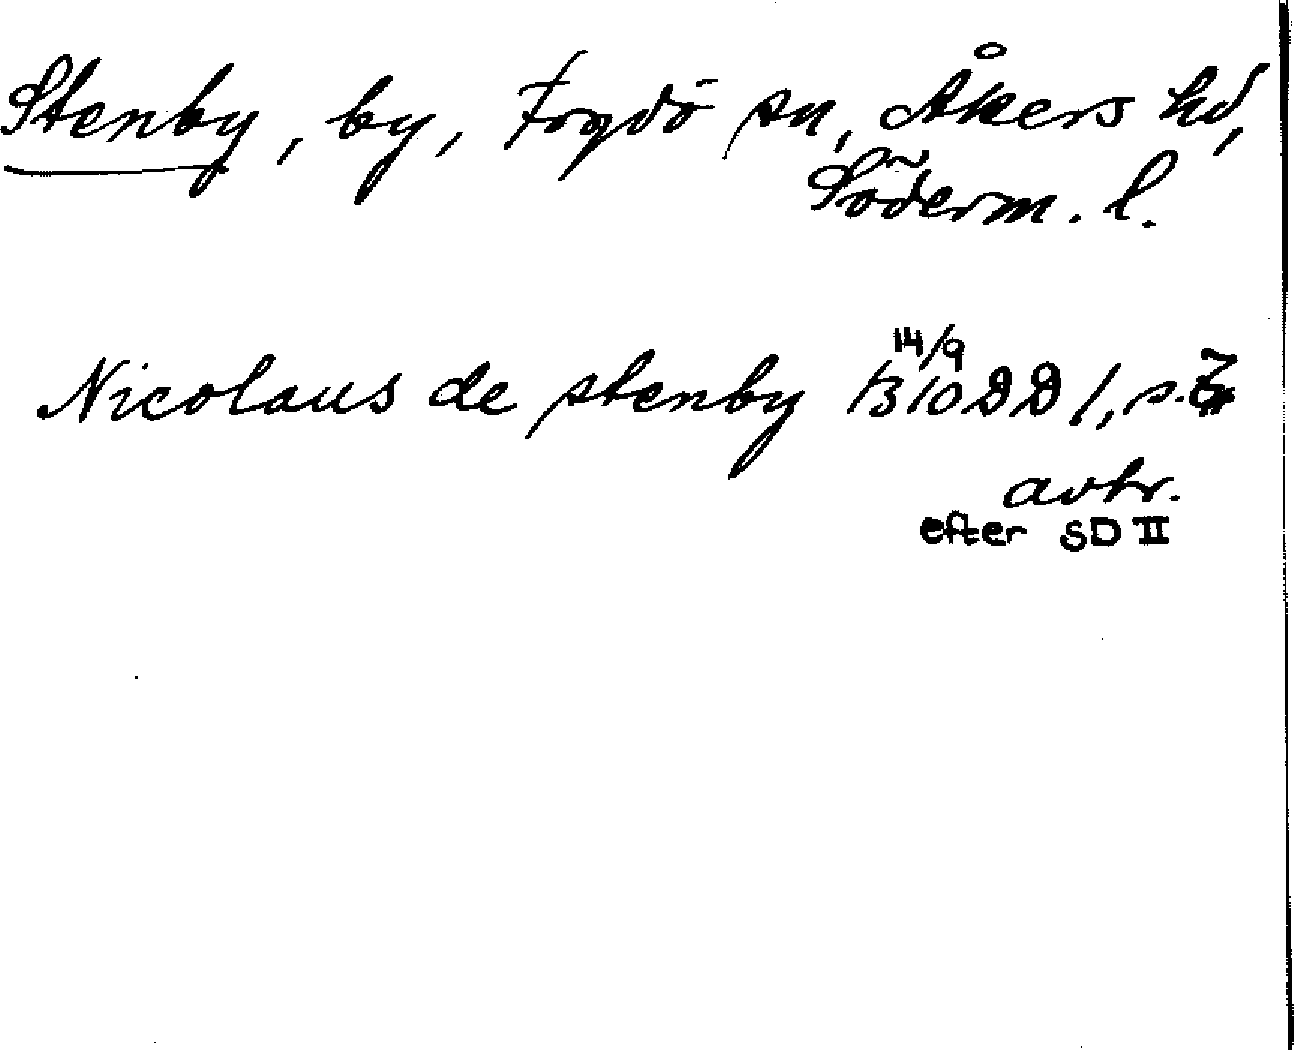 Stenby, by, Fogdö sn, Åkers hd,
Söderm. l.
Nicolaus de stenby 14/9 1310 DD 1, s.
avtr.
efter SD II